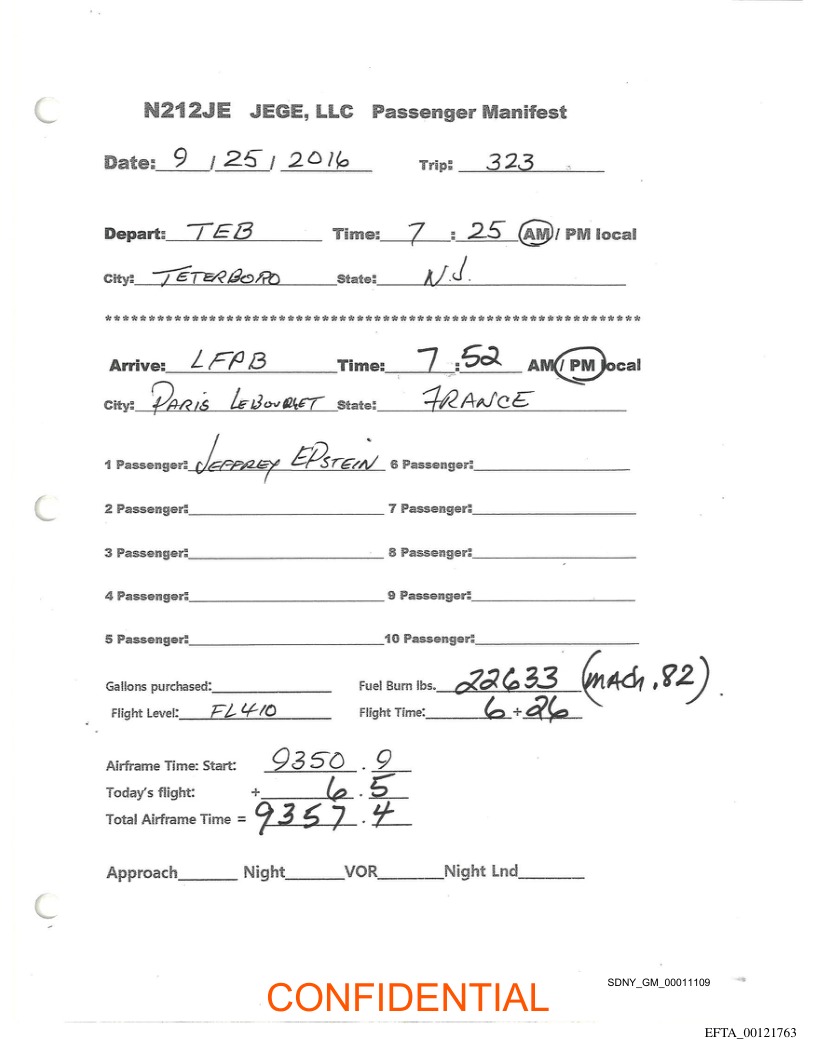 N212JE JEGE, LLC Passenger Manifest
Date: 9 / 25 / 2016 Trip: 323
Depart: TEB Time: 7 : 25 AM / PM local
City: TETERBORO State: N.J.
*************************************************************
Arrive: LFPB Time: 7 : 52 AM / PM local
City: PARIS LEBOURGET State: FRANCE
1 Passenger: JEFFREY EPSTEIN 6 Passenger:
2 Passenger: 7 Passenger:
3 Passenger: 8 Passenger:
4 Passenger: 9 Passenger:
5 Passenger: 10 Passenger:
Gallons purchased: Fuel Burn lbs. 22633 (MACH .82)
Flight Level: FL410 Flight Time: 6 + 26
Airframe Time: Start: 9350 . 9
Today's flight: + 6 . 5
Total Airframe Time = 9357 . 4
Approach Night VOR Night Lnd
SDNY_GM_00011109
CONFIDENTIAL
EFTA_00121763